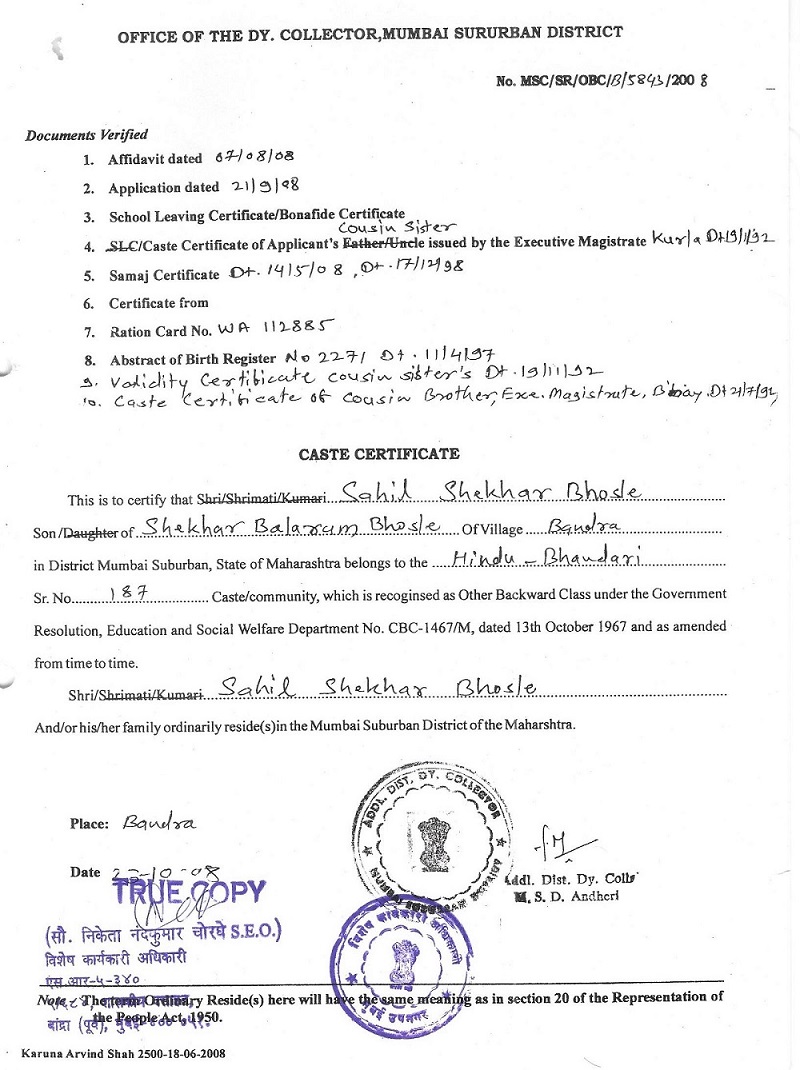 OFFICE OF THE DY. COLLECTOR,MUMBAI SURURBAN DISTRICT
No. MSC/SR/OBC/B/5843/2008
Documents Verified
1. Affidavit dated 07/08/08
2. Application dated 21/9/98
3. School Leaving Certificate/Bonafide Certificate
Cousin Sister
4. SLC/Caste Certificate of Applicant's Father/Uncle issued by the Executive Magistrate Kurla Dt 19/1/92
5. Samaj Certificate Dt. 14/5/08, Dt. 17/12/98
6. Certificate from
7. Ration Card No. WA 112885
8. Abstract of Birth Register No 2271 Dt. 11/4/97
9. Validity Certificate cousin sister's Dt. 19/11/92
10. Caste Certificate of Cousin Brother, Exe. Magistrate, B'bay, Dt 21/7/92
CASTE CERTIFICATE
This is to certify that Shri/Shrimati/Kumari Sahil Shekhar Bhosle
Son/Daughter of Shekhar Balaram Bhosle Of Village Bandra
in District Mumbai Suburban, State of Maharashtra belongs to the Hindu - Bhandari
Sr. No. 187 Caste/community, which is recoginsed as Other Backward Class under the Government
Resolution, Education and Social Welfare Department No. CBC-1467/M, dated 13th October 1967 and as amended
from time to time.
Shri/Shrimati/Kumari Sahil Shekhar Bhosle
And/or his/her family ordinarily reside(s)in the Mumbai Suburban District of the Maharshtra.
ADDL. DIST. DY. COLLECTOR
Place: Bandra
Addl. Dist. Dy. Colle
M. S. D. Andheri
Date 23-10-08
TRUE COPY
(सौ. निकेता नंदकुमार चोरघे S.E.O.)
विशेष कार्यकारी अधिकारी
एस.आर-५-३४०
विशेष कार्यकारी अधिकारी
मुंबई उपनगर
Note : The term Ordinary Reside(s) here will have the same meaning as in section 20 of the Representation of
the People Act, 1950.
बांद्रा (पूर्व), मुंबई
Karuna Arvind Shah 2500-18-06-2008